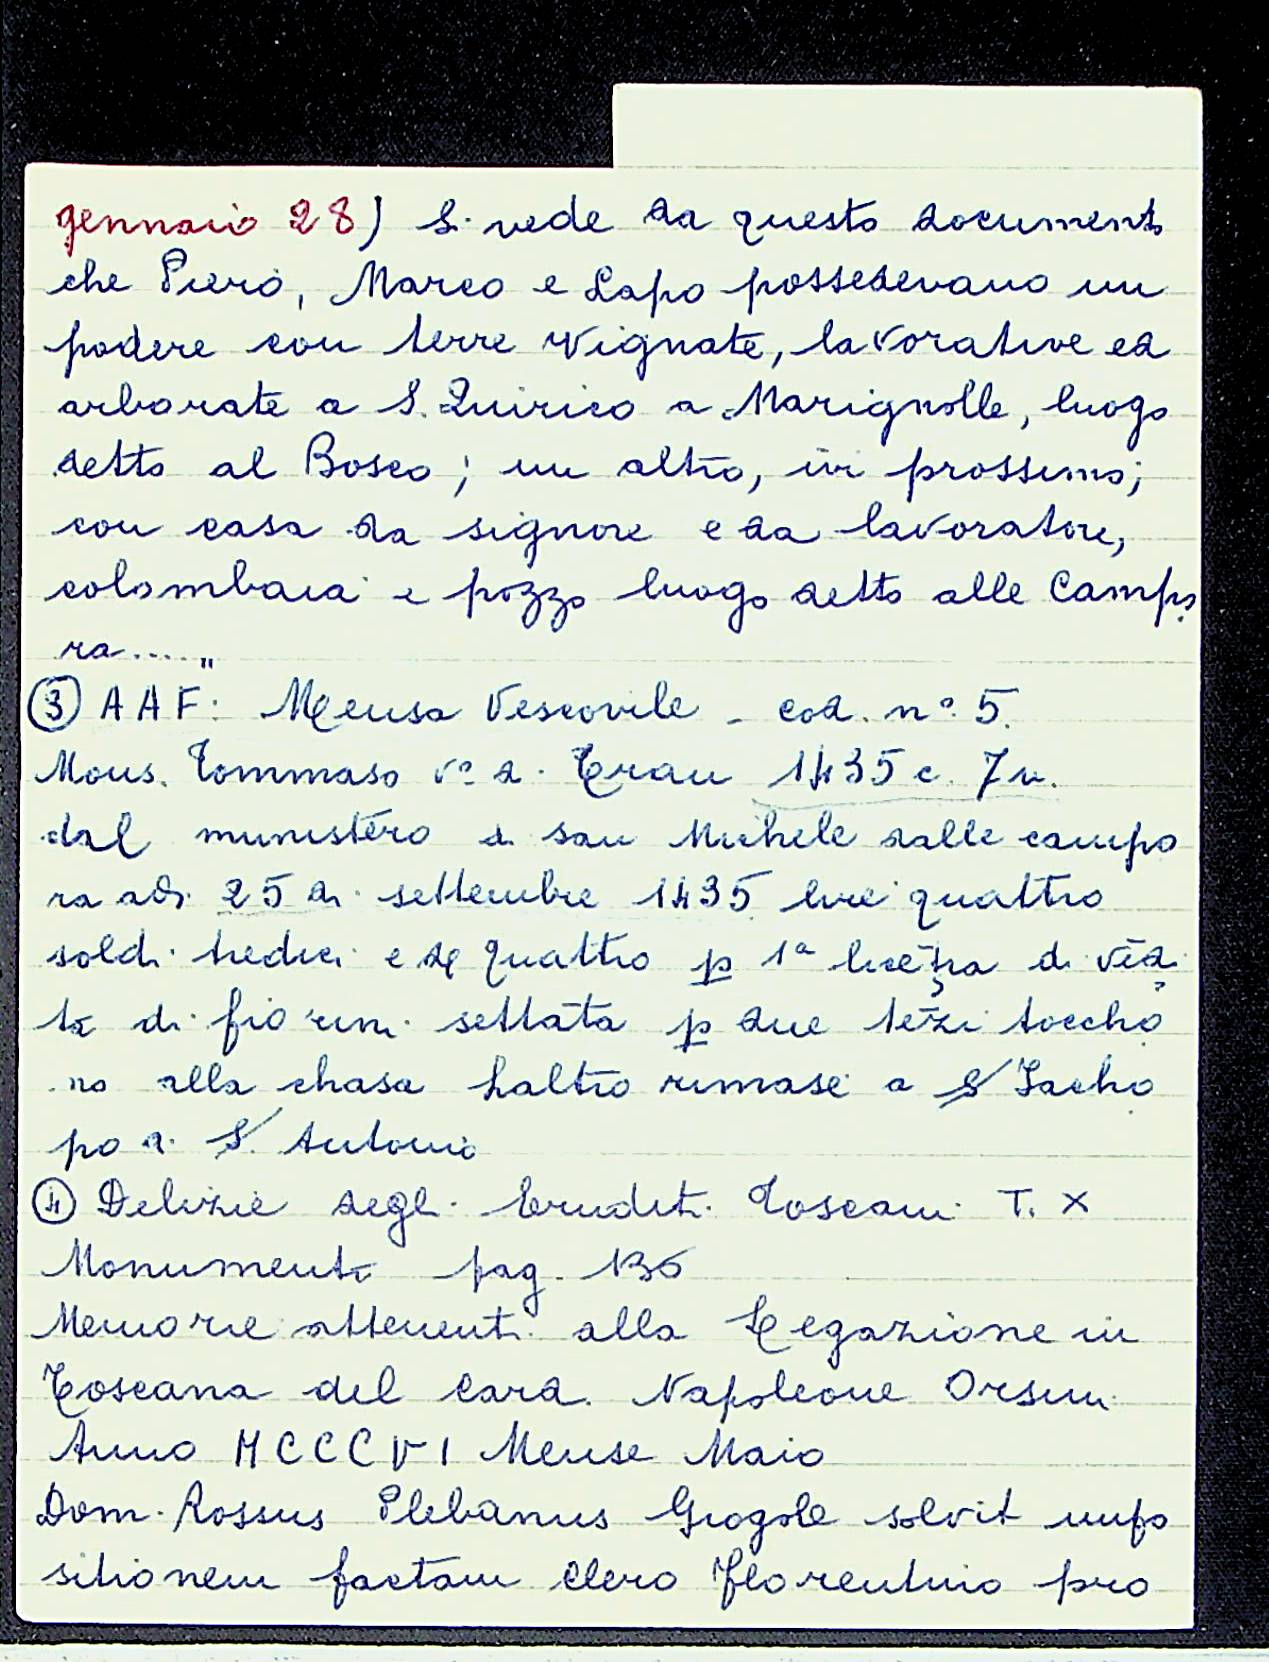 gennaio 28) Si vede da questo documento
che Piero, Marco e Lapo possedevano un
podere con terre vignate, lavorative ed
arborate a S. Quirico a Marignolle, luogo
detto al Bosco; un altro, ivi prossimo;
con casa da signore e da lavoratore,
colombaia e pozzo luogo detto alle Campo
ra....."
③ AAF: Mensa Vescovile - cod. n° 5.
Mons. Tommaso V° d. Trau 1435 c. 7v.
dal munistero di san Michele dalle campo
ra adi 25 di settembre 1435 lire quattro
soldi tredici e d quattro p 1ª licēza di
te di fiorini settāta p due tēzi toccho
no alla chasa laltro rimase a S Iacho
po a. S. Antonio
④ Delizie degli Eruditi Toscani T. X
Monumenti pag. 136
Memorie attenenti alla Legazione in
Toscana del Card. Napoleone Orsini
Anno MCCCVI Mense Maio
Dom. Rossus Plebanus Giogole solvit impo
sitionem factam Clero Florentino pro